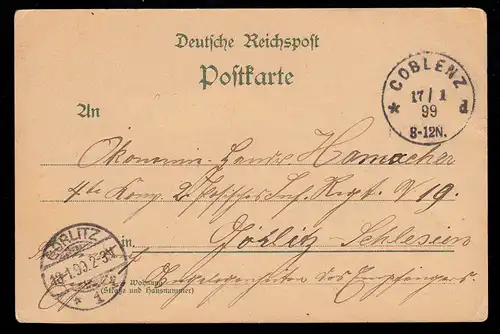 Deutsche Reichspost
Postkarte
COBLENZ
17/1
99
8-12N.
* d
An
Ökonomie-Handw. Hamacher
4te Komp. 2. Posensches Inf. Regt. N 19.
in Görlitz-Schlesien
GÖRLITZ
18.1.99.2-3N
* 1 *
Wohnung
(Straße und Hausnummer)
Angelegenheiten des Empfängers.